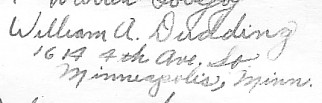 William A. Dudding
1614 4th Ave. So
Minneapolis, Minn.